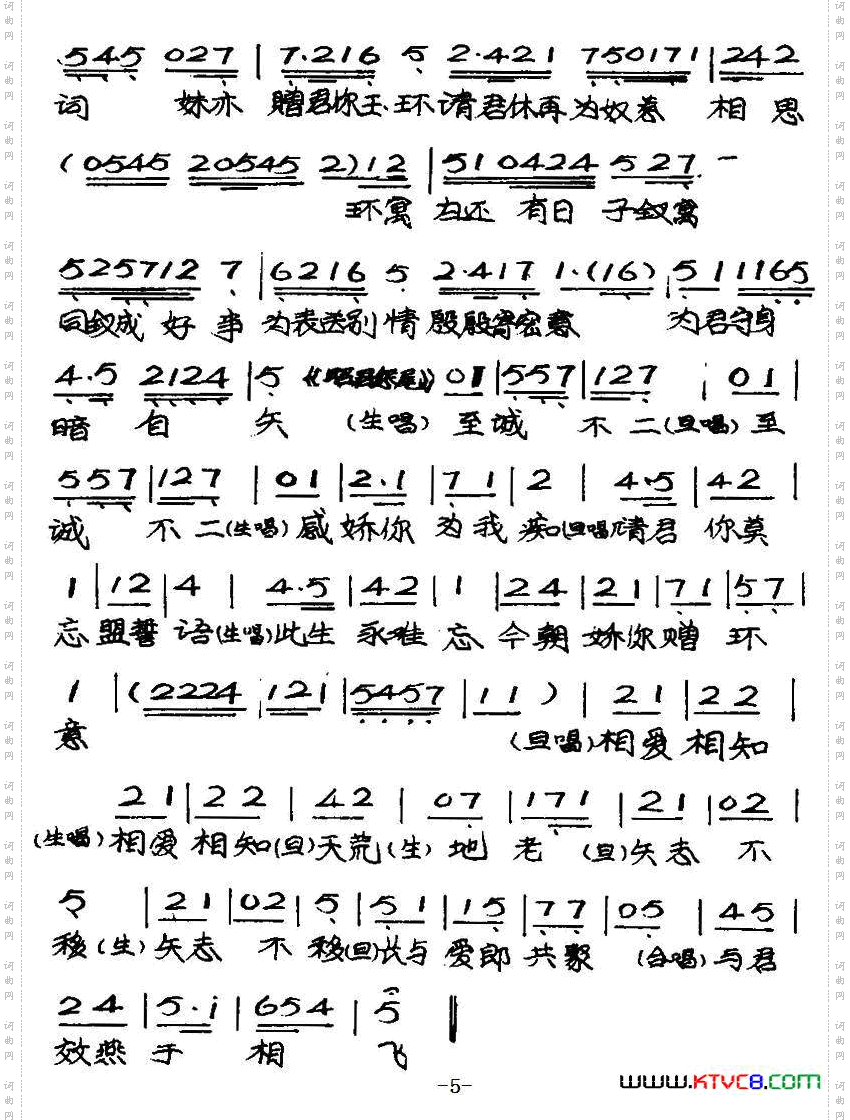 545 027 | 7·216 5 2·421 750171 | 242
词 妹亦 赠君你玉环请君休再为奴惹 相思
(0545 20545 2)12 | 510424 527·—
环寓 为还 有日 子钗寓
525712 7 | 6216 5 2·417 1·(16) | 5 11165
同钗成 好事 为表送别情殷殷寄宏意 为君守身
4·5 2124 | 5 01 | 557 | 127 | 01 |
暗自矢 (生唱) 至诚 不二(旦唱)至
557 | 127 | 01 | 2·1 | 71 | 2 4·5 | 42 |
诚 不二(生唱)感娇你 为我痴(旦唱)请君 你莫
1 | 12 | 4 | 4·5 | 42 | 1 | 24 | 21 | 71 | 57 |
忘盟誓语(生唱)此生 永难 忘 今朝 娇你赠 环
1 | (2224 121 | 5457 | 11 ) | 21 | 22 |
意 (旦唱)相爱相知
21 | 22 | 42 | 07 | 171 | 21 | 02 |
(生唱)相爱相知(旦)天荒(生)地 老 (旦)矢志 不
5 | 21 | 02 | 5 | 51 | 15 | 77 | 05 | 45 |
移(生)矢志 不 移(旦)长与 爱郎 共聚 (合唱)与君
24 | 5·i | 654 | 5 ‖
效燕 于 相 飞
-5-
www.KTVC8.com